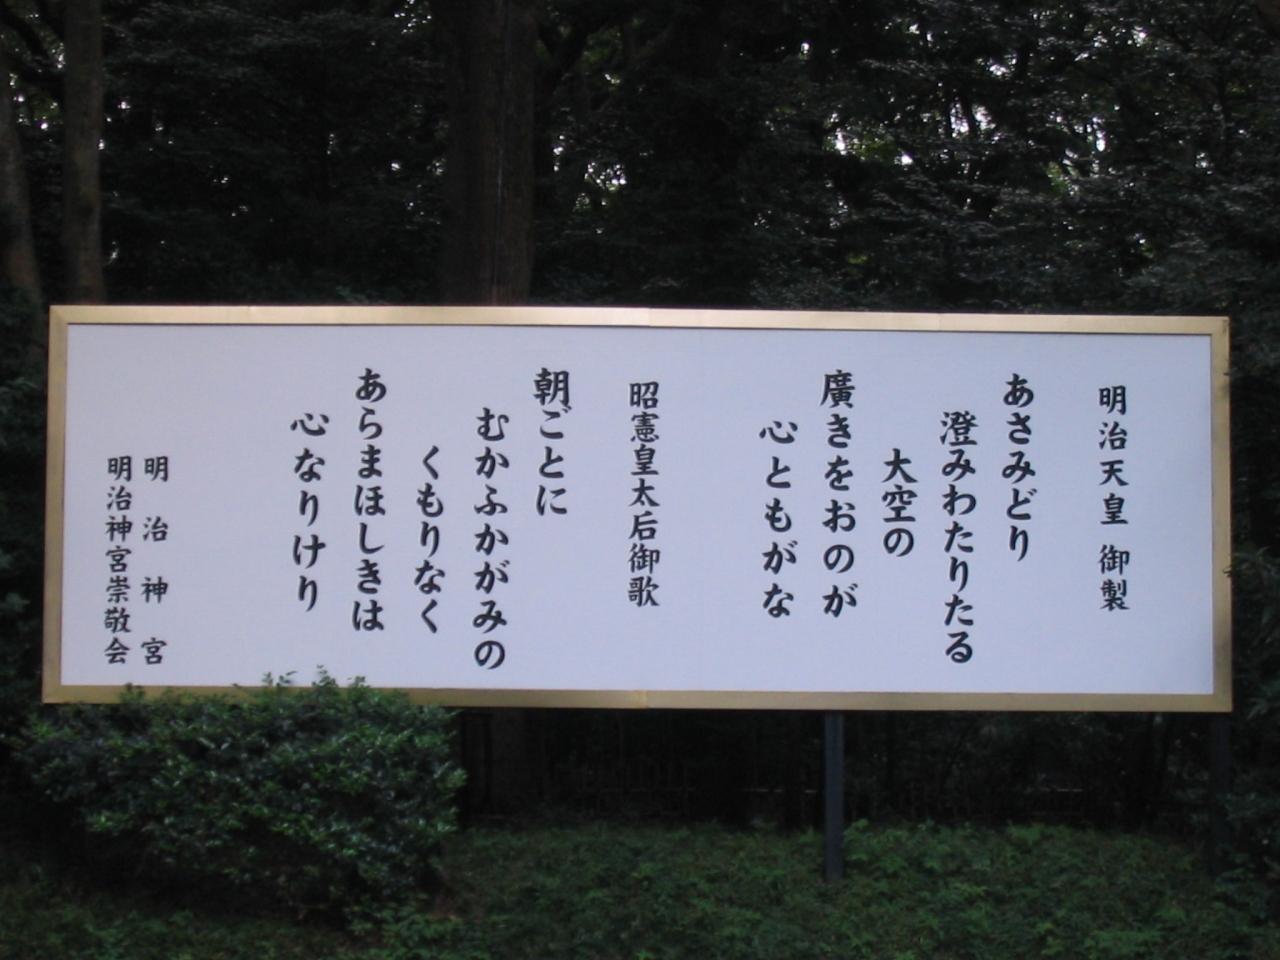 明治天皇 御製
あさみどり
澄みわたりたる
大空の
廣きをおのが
心ともがな
昭憲皇太后御歌
朝ごとに
むかふかがみの
くもりなく
あらまほしきは
心なりけり
明治神宮
明治神宮崇敬会